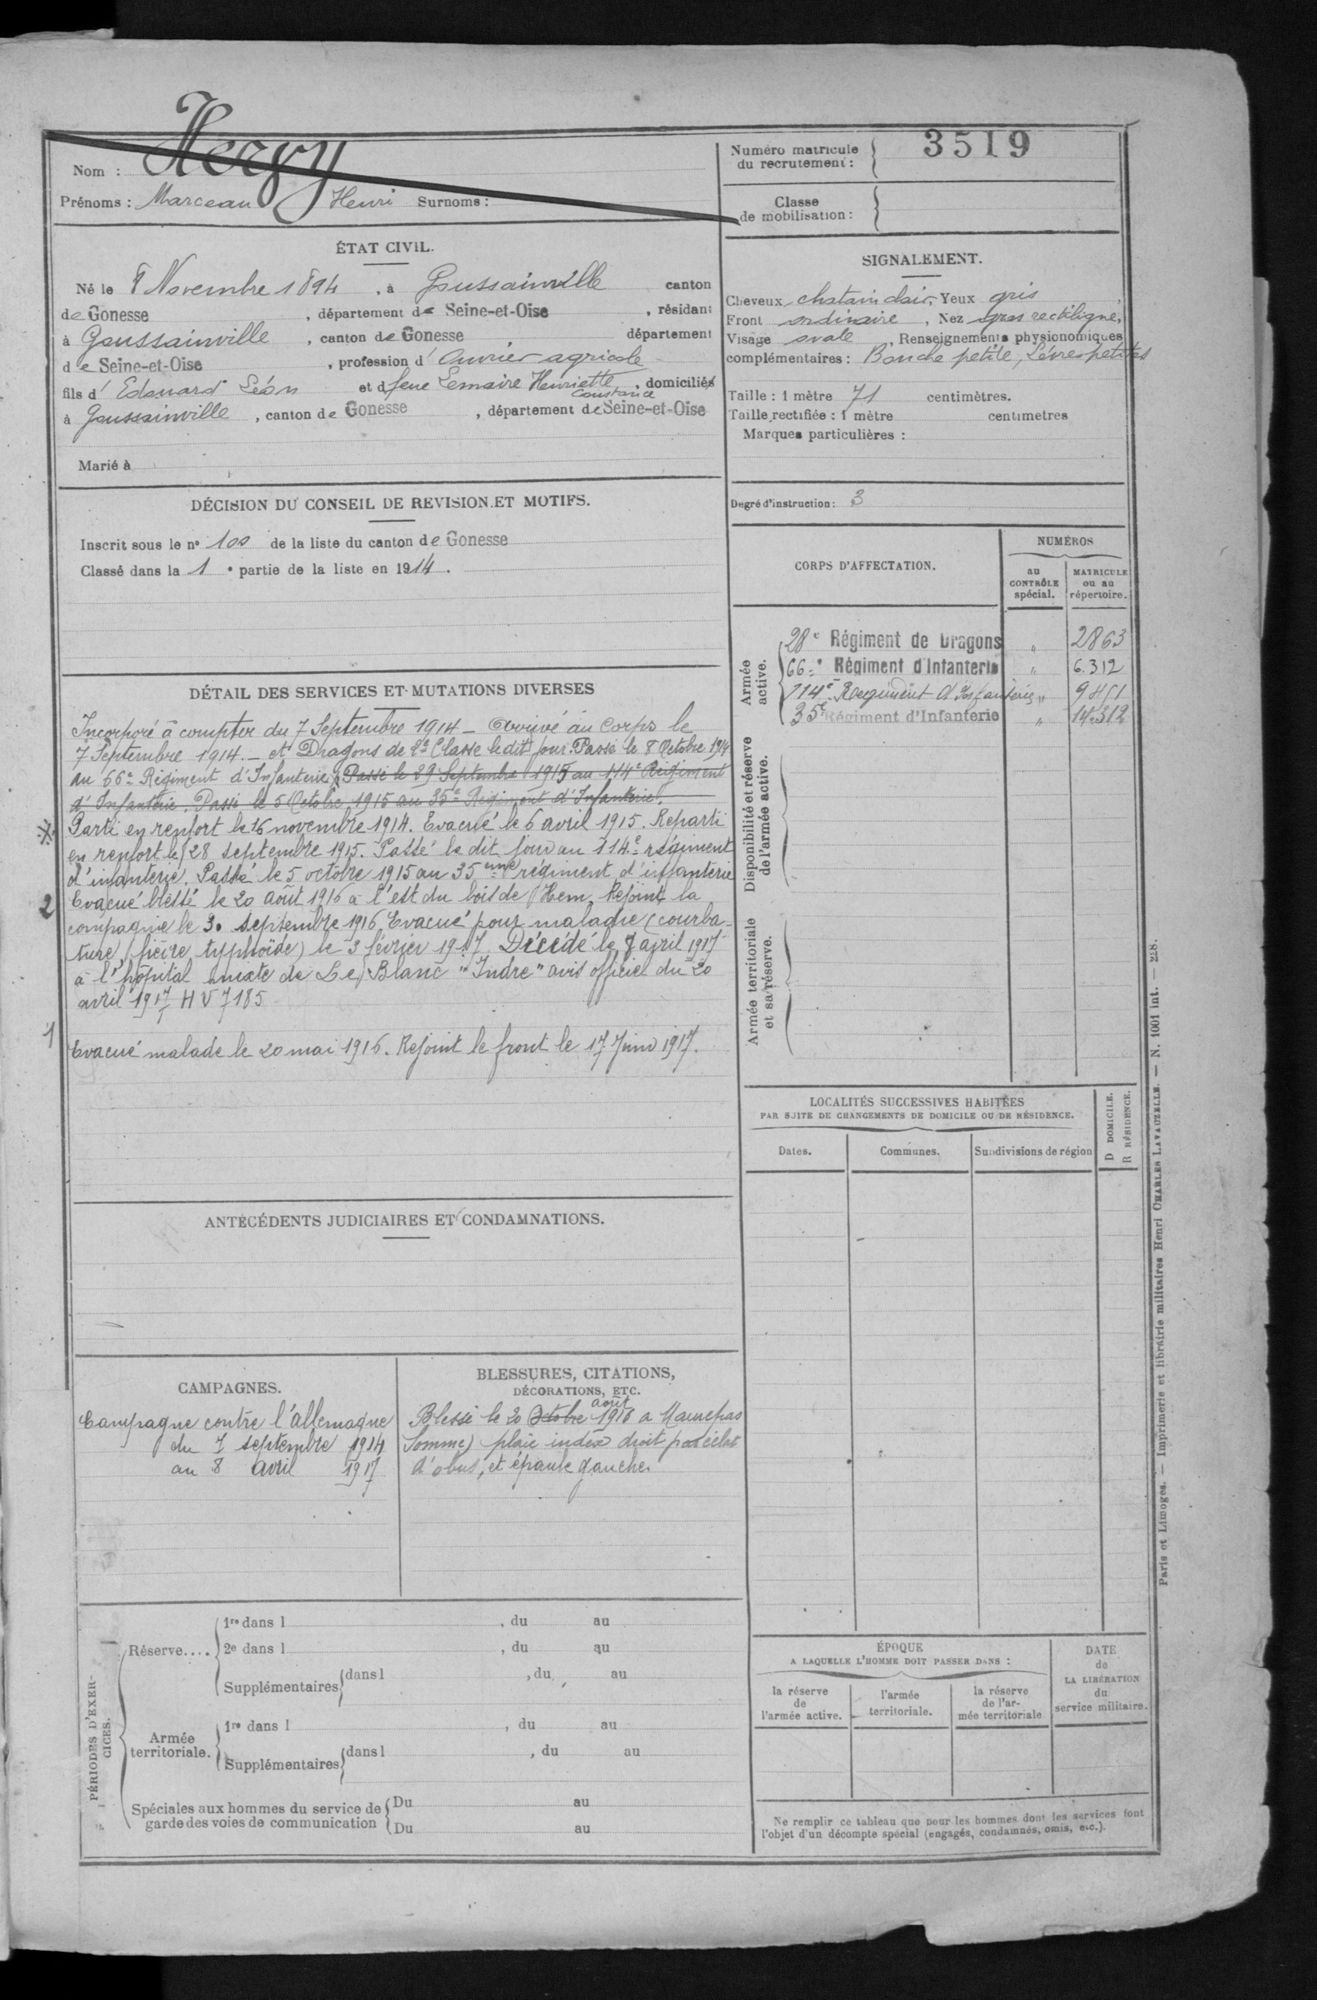 Nom : Hergy
Prénoms : Marceau Henri Surnoms :
Numéro matricule
du recrutement : 3519
Classe
de mobilisation :
ÉTAT CIVIL.
Né le 8 Novembre 1894, à Goussainville canton
de Gonesse, département de Seine-et-Oise, résidant
à Goussainville, canton de Gonesse département
de Seine-et-Oise, profession d'ouvrier agricole
fils d'Edouard Léon et d feue Lemaire Henriette, domiciliés
Constance
à Goussainville, canton de Gonesse, département de Seine-et-Oise
Marié à
SIGNALEMENT.
Cheveux chatain clair, Yeux gris
Front ordinaire, Nez gros rectiligne,
Visage ovale, Renseignements physionomiques
complémentaires : Bouche petite, Lèvres petites
Taille : 1 mètre 71 centimètres.
Taille rectifiée : 1 mètre centimètres
Marques particulières :
Degré d'instruction : 3
DÉCISION DU CONSEIL DE REVISION ET MOTIFS.
Inscrit sous le n° 100 de la liste du canton de Gonesse
Classé dans la 1e partie de la liste en 1914.
CORPS D'AFFECTATION.
NUMÉROS
au
CONTRÔLE
spécial.
MATRICULE
ou au
répertoire.
Armée
active.
28e Régiment de Dragons " 2863
66e Régiment d'Infanterie " 6.312
114e Régiment d'Infanterie "
35e Régiment d'Infanterie " 14312
Disponibilité et réserve
de l'armée active.
Armée territoriale
et sa réserve.
DÉTAIL DES SERVICES ET MUTATIONS DIVERSES
Incorporé à compter du 7 Septembre 1914 - Arrivé au Corps le
7 Septembre 1914. - et Dragons de 2e Classe ledit jour. Passé le 8 Octobre 1914
au 66e Régiment d'Infanterie. Passé le 29 Septembre 1915 au 114e Régiment
d'Infanterie. Passé le 5 Octobre 1915 au 35e Régiment d'Infanterie.
Parti en renfort le 16 novembre 1914. Evacué le 6 avril 1915. Reparti
en renfort le 28 septembre 1915. Passé le dit jour au 114e régiment
d'infanterie. Passé le 5 octobre 1915 au 35eme régiment d'infanterie
2 Evacué blessé le 20 août 1916 à l'est du bois de Hem. Rejoint la
compagnie le 30 septembre 1916 Evacué pour maladie (courba-
ture, fièvre typhoïde) le 3 février 1917. Décédé le 8 avril 1917
à l'hôpital mixte de Le Blanc "Indre" avis officiel du 20
avril 1917 HV 7185
1 Evacué malade le 20 mai 1916. Rejoint le front le 17 Juin 1917.
LOCALITÉS SUCCESSIVES HABITÉES
PAR SUITE DE CHANGEMENTS DE DOMICILE OU DE RÉSIDENCE.
Dates. Communes. Subdivisions de région
D DOMICILE.
R RÉSIDENCE.
ANTÉCÉDENTS JUDICIAIRES ET CONDAMNATIONS.
CAMPAGNES.
Campagne contre l'Allemagne
du 7 septembre 1914
au 8 avril 1917
BLESSURES, CITATIONS,
DÉCORATIONS, ETC.
août
Blessé le 20 Octobre 1916 a Maurepas
Somme) plaie index droit par éclat
d'obus, et épaule gauche.
PÉRIODES D'EXER-
CICES.
Réserve....
1re dans l , du au
2e dans l , du au
Supplémentaires dans l , du au
Armée
territoriale.
1re dans l , du au
Supplémentaires dans l , du au
Spéciales aux hommes du service de
garde des voies de communication
Du au
Du au
ÉPOQUE
A LAQUELLE L'HOMME DOIT PASSER DANS :
la réserve
de
l'armée active.
l'armée
territoriale.
la réserve
de l'ar-
mée territoriale
DATE
de
LA LIBÉRATION
du
service militaire.
Ne remplir ce tableau que pour les hommes dont les services font
l'objet d'un décompte spécial (engagés, condamnés, omis, etc.).
Paris et Limoges. — Imprimerie et librairie militaires Henri CHARLES LAVAUZELLE. — N. 1001 int. — 228.